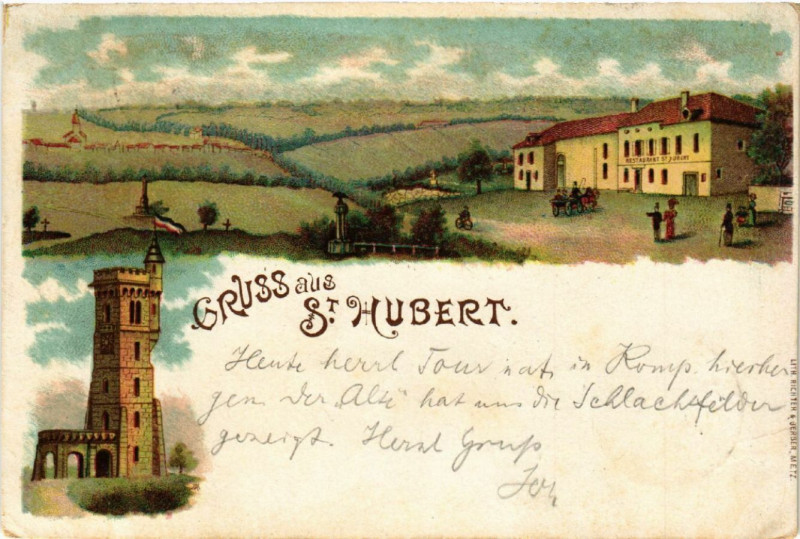 RESTAURANT ST HUBERT
GRUSS aus
ST. HUBERT.
Heute herrl Tour in Komp. hierher
gem Der „Alte“ hat uns die Schlachtfelder
gezeigt. Herzl Gruß
LITH. RICHTER & GERBER, METZ.